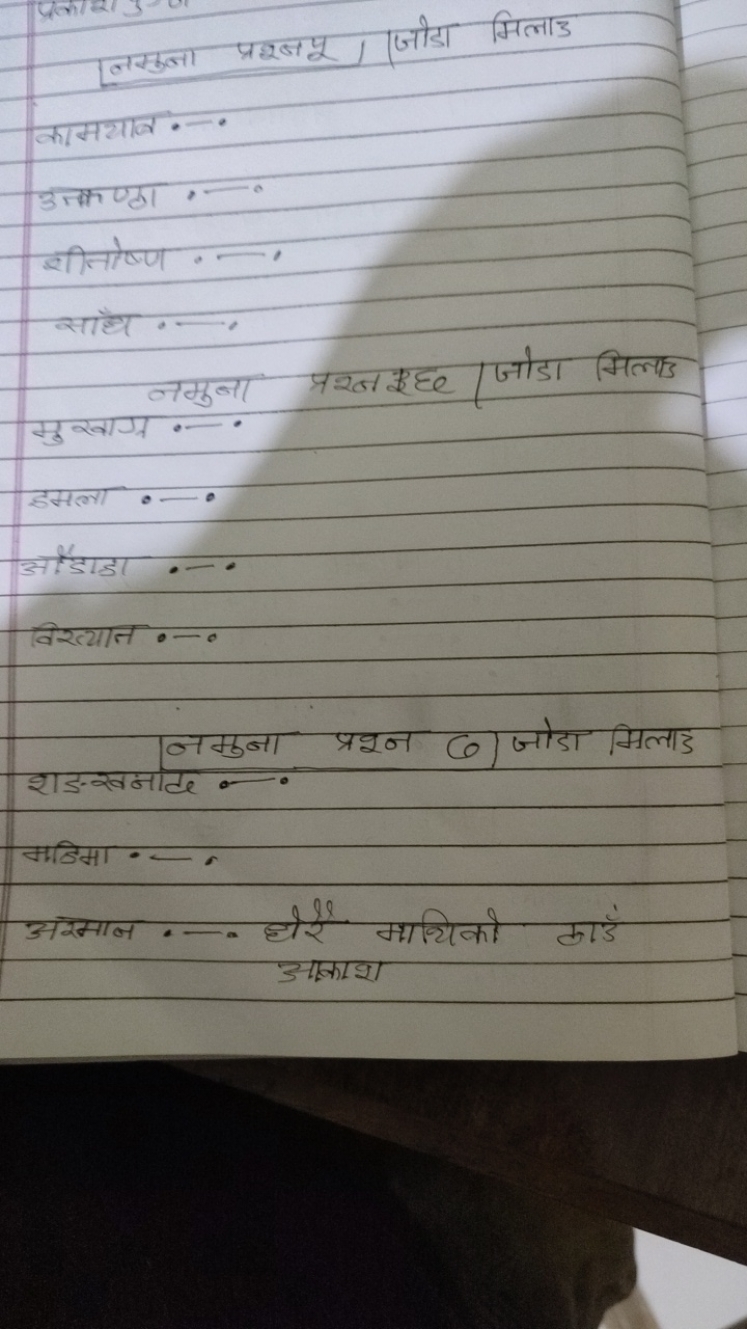 प्रकाश
नमुना प्रश्न ५ । जोडा मिलाउ
कामयाव •—•
उत्कण्ठा •—•
शीतोष्ण •—•
साँध •—•
नमुना प्रश्न ६ । जोडा मिलाउ
मुखाग्र •—•
डमला •—•
औडाहा •—•
विख्यात •—•
नमुना प्रश्न ७ । जोडा मिलाउ
शङ्खनाद •—•
मडिमा •—•
अस्मान •—• धेरै माथिको ठाउँ
आकाश